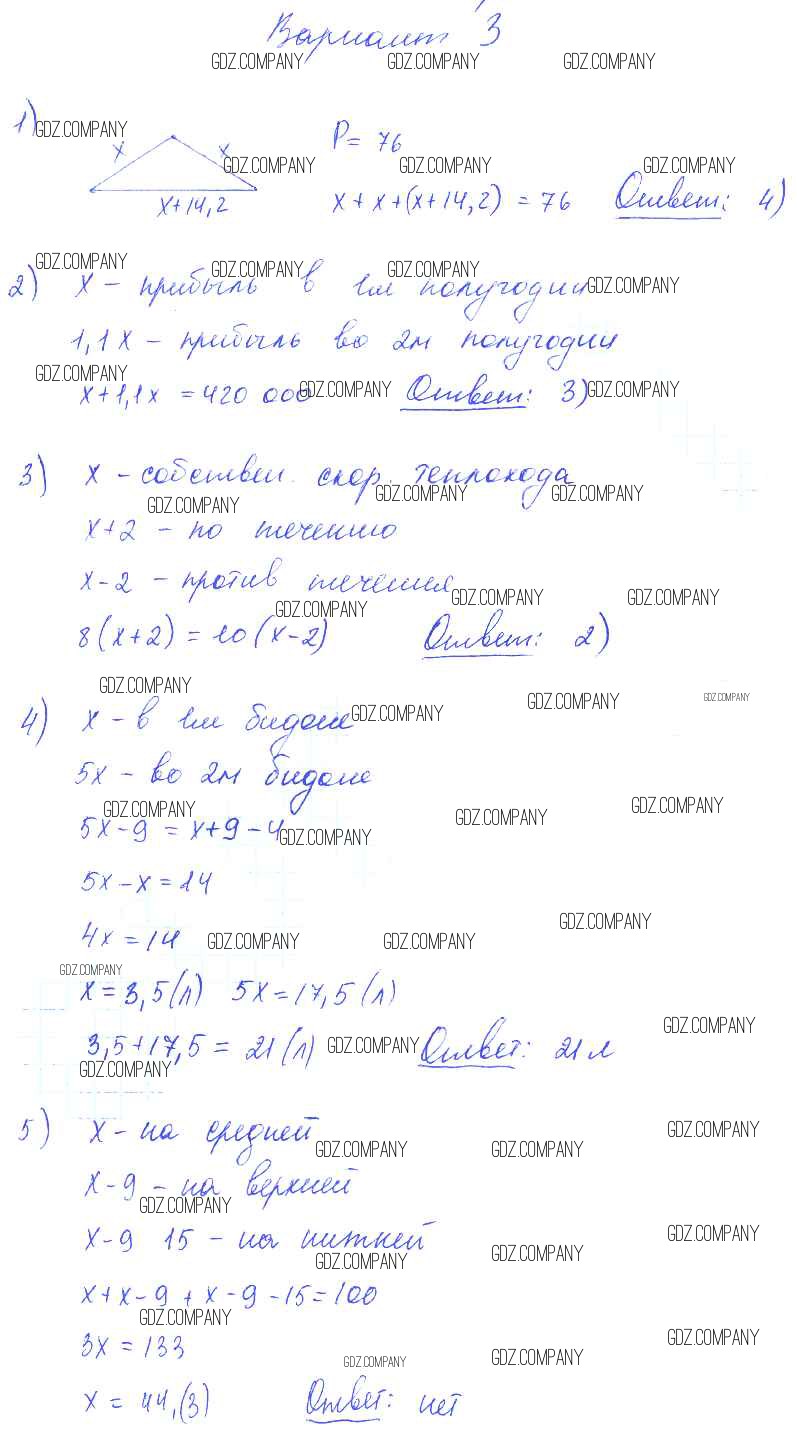 Вариант 3
GDZ.COMPANY GDZ.COMPANY GDZ.COMPANY
1) GDZ.COMPANY P = 76
x x
GDZ.COMPANY GDZ.COMPANY GDZ.COMPANY
x+14,2 x + x + (x + 14,2) = 76 Ответ: 4)
GDZ.COMPANY GDZ.COMPANY GDZ.COMPANY
2) x – прибыль в 1м полугодии GDZ.COMPANY
1,1x – прибыль во 2м полугодии
GDZ.COMPANY
x+1,1x = 420 000 GDZ.COMPANY Ответ: 3) GDZ.COMPANY
3) x – собствен. скор. теплохода
GDZ.COMPANY GDZ.COMPANY GDZ.COMPANY
x+2 – по течению
x-2 – против течения
GDZ.COMPANY GDZ.COMPANY GDZ.COMPANY
8(x+2) = 10(x-2) Ответ: 2)
GDZ.COMPANY GDZ.COMPANY GDZ.COMPANY
4) x – в 1м бидоне GDZ.COMPANY
5x – во 2м бидоне
GDZ.COMPANY GDZ.COMPANY GDZ.COMPANY
5x-9 = x+9-4 GDZ.COMPANY
5x-x = 14
GDZ.COMPANY
4x = 14 GDZ.COMPANY GDZ.COMPANY
GDZ.COMPANY
x = 3,5 (л) 5x = 17,5 (л)
GDZ.COMPANY
3,5+17,5 = 21 (л) GDZ.COMPANY Ответ: 21 л
GDZ.COMPANY
5) x – на средней GDZ.COMPANY
GDZ.COMPANY GDZ.COMPANY
x-9 – на верхней
GDZ.COMPANY
x-9 15 – на нижней GDZ.COMPANY
GDZ.COMPANY GDZ.COMPANY
x+x-9+x-9-15=100
GDZ.COMPANY
3x = 133 GDZ.COMPANY
GDZ.COMPANY GDZ.COMPANY
x = 44,(3) Ответ: нет